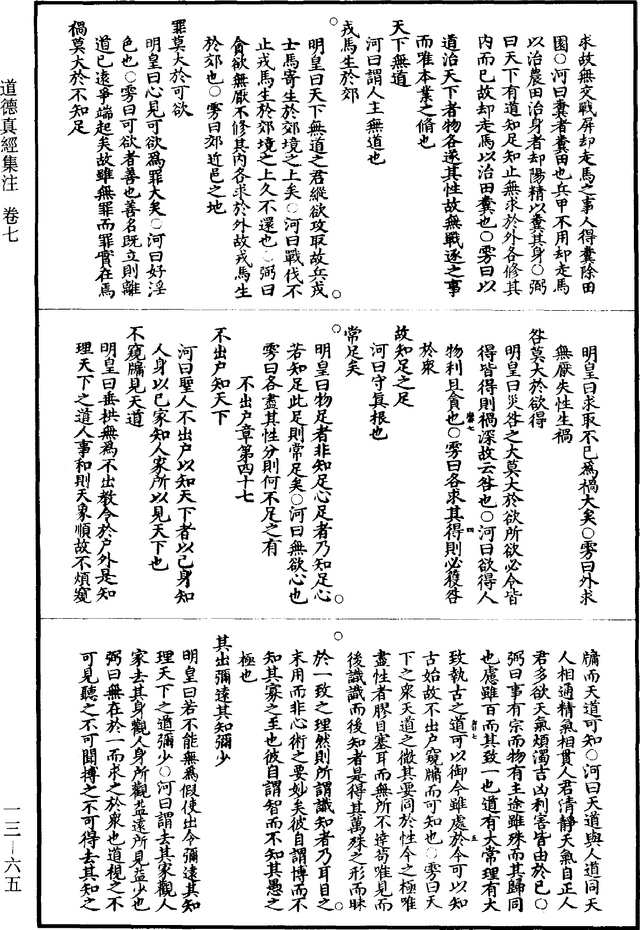 求故無交戰屏却走馬之事人得糞除田
園○河曰糞者糞田也兵甲不用却走馬
以治農田治身者却陽精以糞其身○弼
曰天下有道知足知止無求於外各修其
內而已故却走馬以治田糞也○雱曰以
道治天下者物各遂其性故無戰逐之事
而唯本業之脩也
天下無道
河曰謂人主無道也
戎馬生於郊
明皇曰天下無道之君縱欲攻取故兵戎
士馬寄生於郊境之上矣○河曰戰伐不
止戎馬生於郊境之上久不還也○弼曰
貪欲無厭不修其內各求於外故戎馬生
於郊也○雱曰郊近邑之地
罪莫大於可欲
明皇曰心見可欲為罪大矣○河曰好淫
色也○雱曰可欲者善也善名既立則離
道已遠爭端起矣故雖無罪而罪實在焉
禍莫大於不知足
明皇曰求取不已為禍大矣○雱曰外求
無厭失性生禍
咎莫大於欲得
明皇曰災咎之大莫大於欲所欲必令皆
得皆得則禍深故云咎也○河曰欲得人
物利且貪也○雱曰各求其得則必獲咎
於衆
故知足之足
河曰守真根也
常足矣
明皇曰物足者非知足心足者乃知足心
若知足此足則常足矣○河曰無欲心也
雱曰各盡其性分則何不足之有
不出户章第四十七
不出户知天下
河曰聖人不出户以知天下者以己身知
人身以己家知人家所以見天下也
不窺牖見天道
明皇曰垂拱無為不出教令於户外是知
理天下之道人事和則天象順故不煩窺
牖而天道可知○河曰天道與人道同天
人相通精氣相貫人君清靜天氣自正人
君多欲天氣煩濁吉凶利害皆由於己○
弼曰事有宗而物有主途雖殊而其歸同
也慮雖百而其致一也道有大常理有大
致執古之道可以御今雖處於今可以知
古始故不出户窺牖而可知也○雱曰天
下之衆天道之微其要同於性今之極唯
盡性者膠目塞耳而無所不達苟唯見而
後識識而後知者是得其萬殊之形而昧
於一致之理然則所謂識知者乃耳目之
末用而非心術之要妙矣彼自謂博而不
知其寡之至也彼自謂智而不知其愚之
極也
其出彌遠其知彌少
明皇曰若不能無為假使出令彌遠其知
理天下之道彌少○河曰謂去其家觀人
家去其身觀人身所觀益遠所見益少也
弼曰無在於一而求之於衆也道視之不
可見聽之不可聞搏之不可得去其知之
道德真經集注 卷七
一三—六五